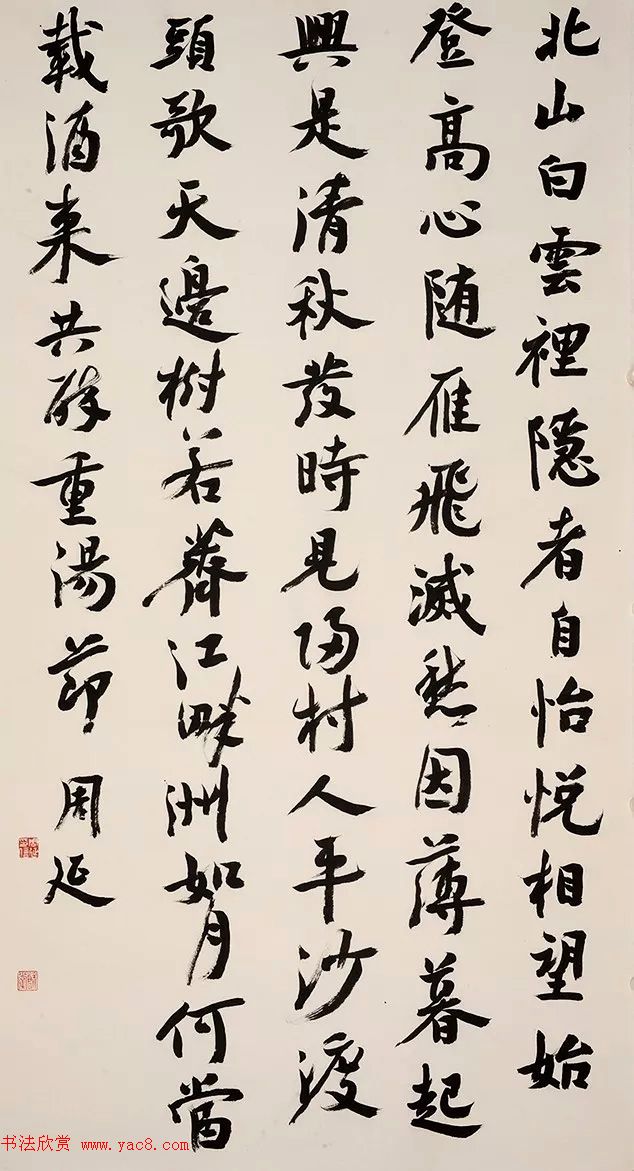 北山白雲裡隱者自怡悅相望始
登高心随雁飛滅愁因薄暮起
興是清秋發時見歸村人平沙渡
頭歌天邊樹若薺江畔洲如月何當
載酒來共醉重湯節 周延
书法欣赏 www.yac8.com